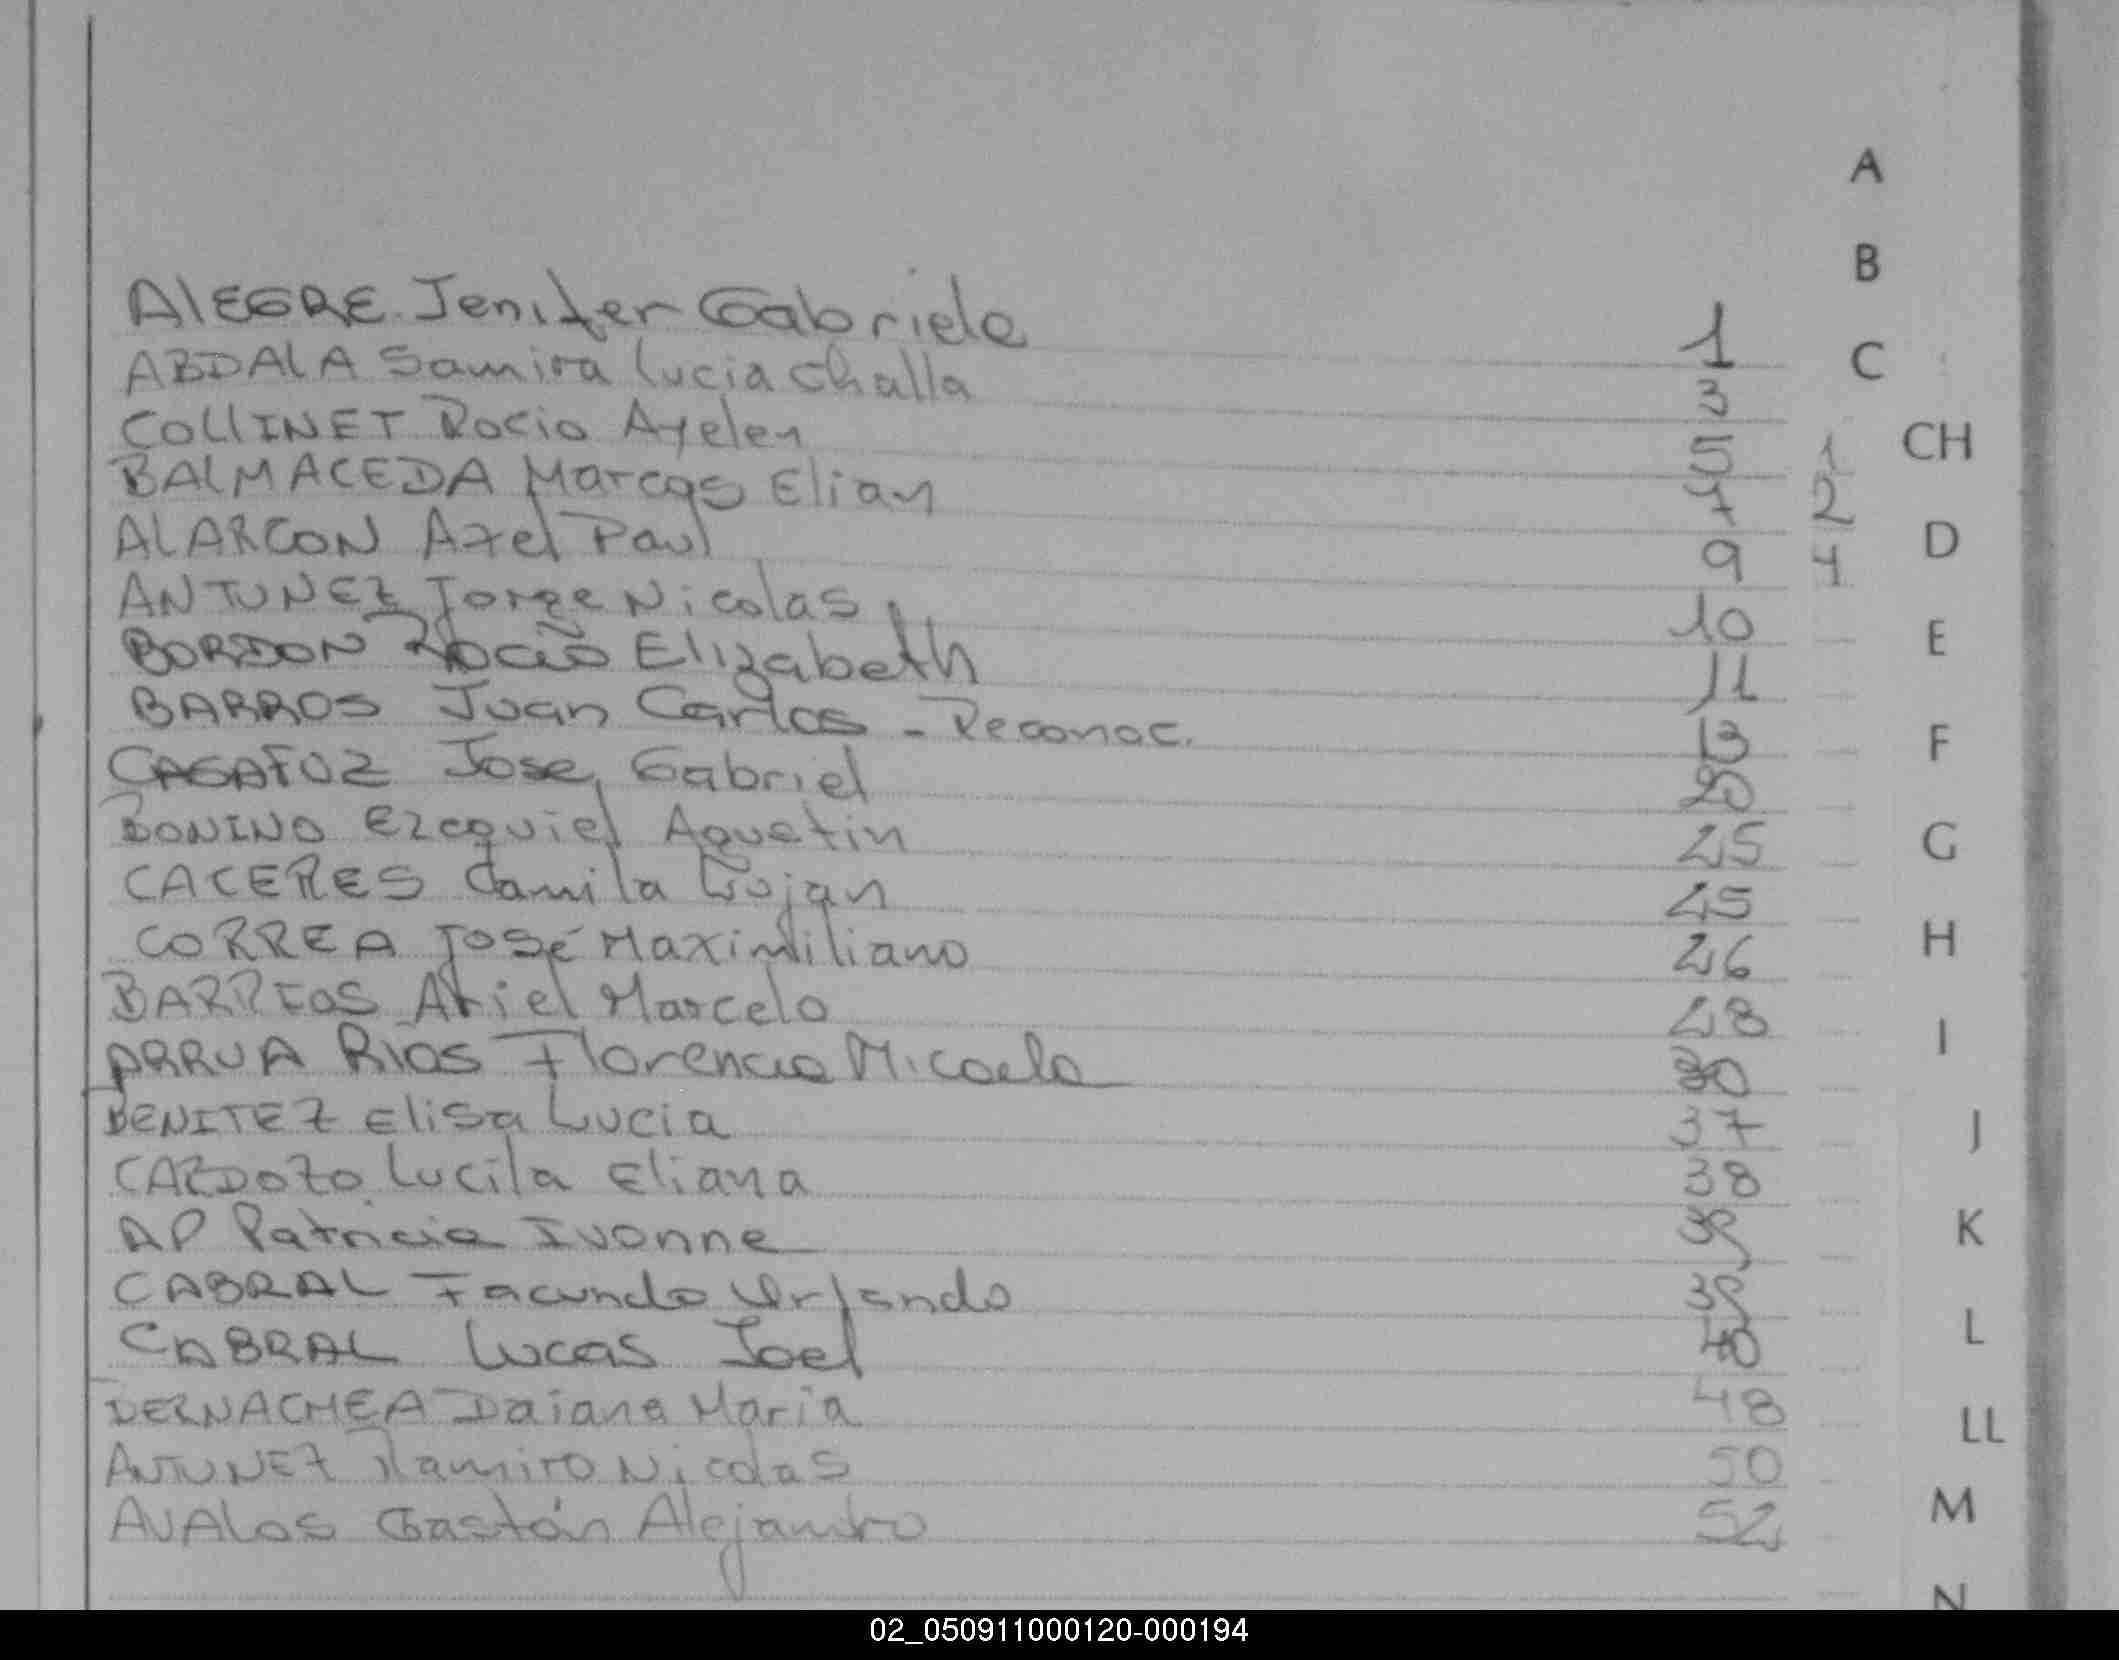 A
B
ALEGRE Jenifer Gabriela 1
C
ABDALA Samira Lucia Challa 3
COLLINET Rocio Ayelen 5 1 CH
BALMACEDA Marcos Elian 7 2
ALARCON Axel Paul 9 4 D
ANTUNEZ Jorge Nicolas 10 E
BORDON Rocio Elizabeth 11
BARROS Juan Carlos - Reconoc. 13 F
Jose Gabriel 20
BONINO Ezequiel Agustin 25 G
CACERES Camila Lujan 25
CORREA José Maximiliano 26 H
BARRIOS Ariel Marcelo 28 I
ARRUA RIOS Florencia Micaela 30
BENITEZ Elisa Lucia 37 J
CARDOZO Lucila Eliana 38
AP Patricia Ivonne 39 K
CABRAL Facundo 39 L
CABRAL Lucas Joel 40
BERNACHEA Daiana Maria 48 LL
ANTUNEZ Ramiro Nicolas 50 M
AVALOS Gastón Alejandro 52
N
02_050911000120-000194